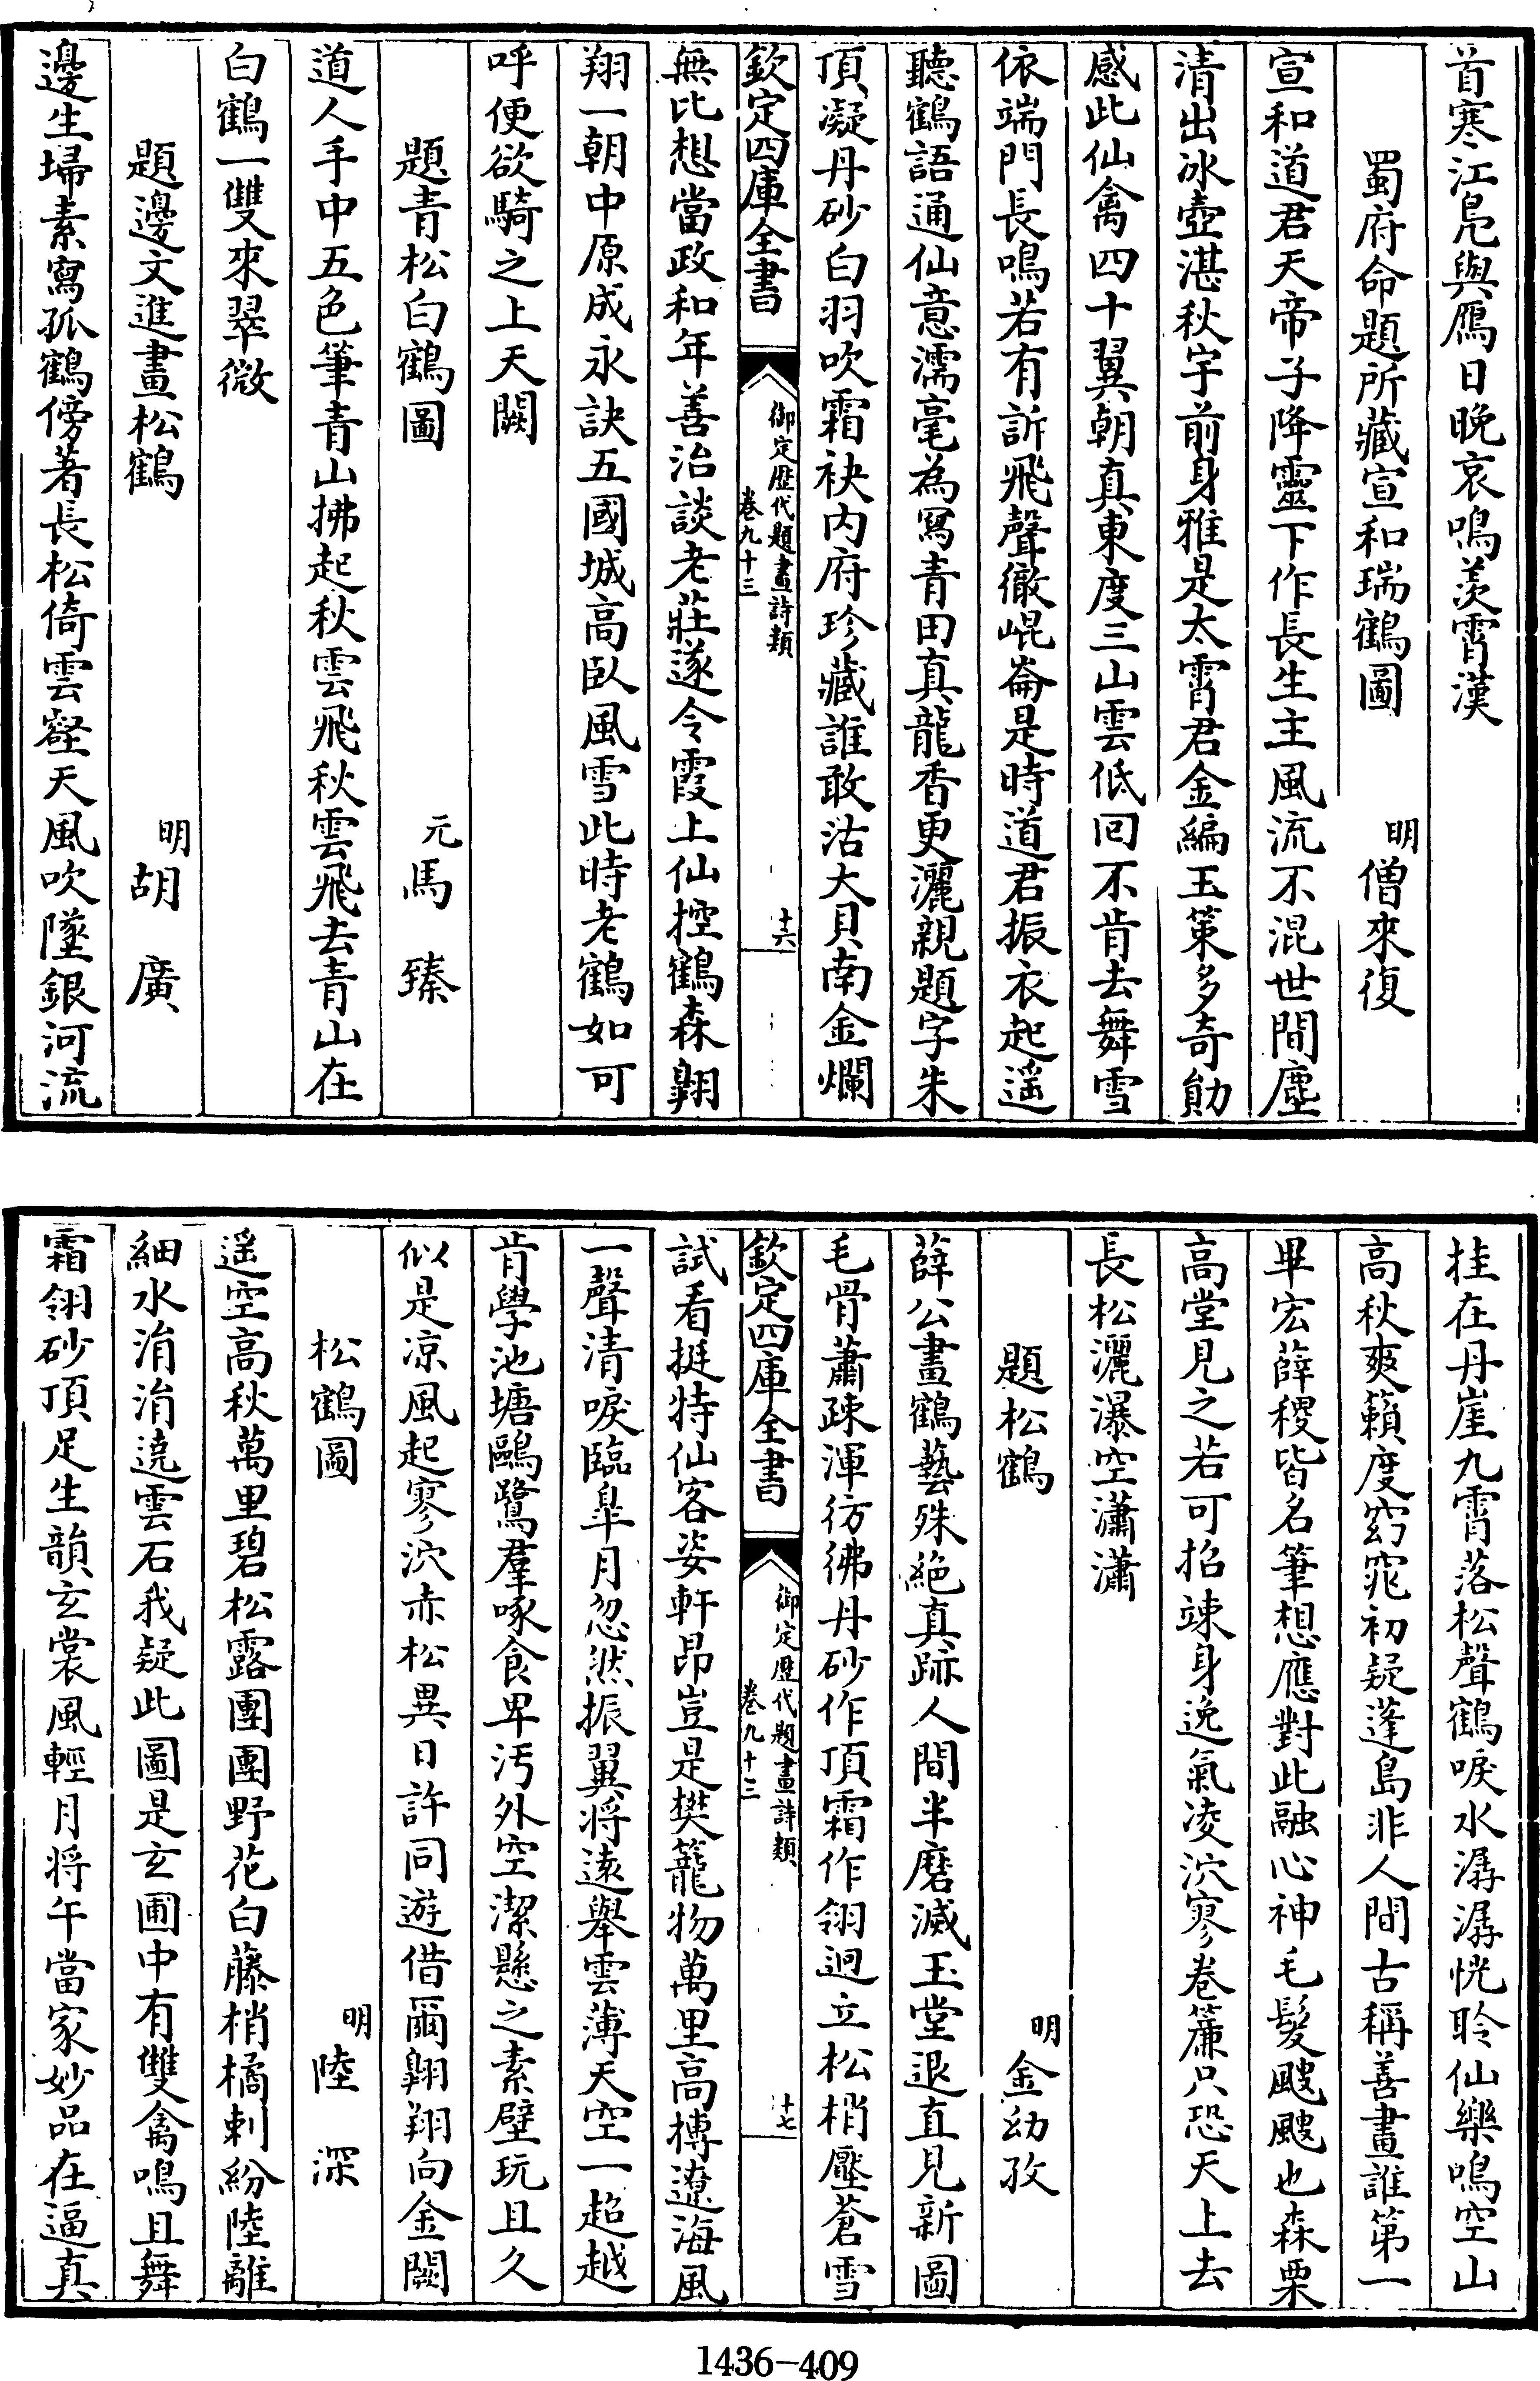 首寒江鳬與鴈日晚哀鳴羨霄漢
蜀府命題所藏宣和瑞鶴圖 明 僧來復
宣和道君天帝子降靈下作長生主風流不混世間塵
清出冰壺湛秋宇前身雅是太霄君金編玉策多奇勛
感此仙禽四十翼朝真東度三山雲低回不肯去舞雪
依端門長鳴若有訴飛聲徹崐崙是時道君振衣起遥
聽鶴語通仙意濡毫為寫青田真龍香更灑親題字朱
頂凝丹砂白羽吹霜袂内府珍藏誰敢沽大貝南金爛
欽定四庫全書 御定歴代題畫詩類 卷九十三 十六
無比想當政和年善治談老莊遂令霞上仙控鶴森翺
翔一朝中原成永訣五國城高臥風雪此時老鶴如可
呼便欲騎之上天闕
題青松白鶴圖 元 馬臻
道人手中五色筆青山拂起秋雲飛秋雲飛去青山在
白鶴一雙來翠微
題邊文進畫松鶴 明 胡廣
邊生掃素寫孤鶴傍著長松倚雲壑天風吹墜銀河流
挂在丹崖九霄落松聲鶴唳水潺潺恍聆仙樂鳴空山
高秋爽籟度窈窕初疑蓬島非人間古稱善畫誰第一
畢宏薛稷皆名筆想應對此融心神毛髮颼颼也森栗
高堂見之若可招竦身逸氣凌泬寥卷簾只恐天上去
長松灑瀑空瀟瀟
題松鶴 明 金幼孜
薛公畫鶴藝殊絶真跡人間半磨滅玉堂退直見新圖
毛骨蕭疎渾彷彿丹砂作頂霜作翎迥立松梢壓蒼雪
欽定四庫全書 御定歴代題畫詩類 卷九十三 十七
試看挺特仙客姿軒昂豈是樊籠物萬里高摶遼海風
一聲清唳臨臯月忽然振翼将遠舉雲薄天空一超越
肯學池塘鷗鷺羣啄食卑汚外空潔懸之素壁玩且久
似是凉風起寥泬赤松異日許同遊借爾翺翔向金闕
松鶴圖 明 陸深
遥空高秋萬里碧松露團團野花白藤梢橘刺紛陸離
細水涓涓遶雲石我疑此圖是玄圃中有雙禽鳴且舞
霜翎砂頂足生韻玄裳風輕月将午當家妙品在逼真
1436-409